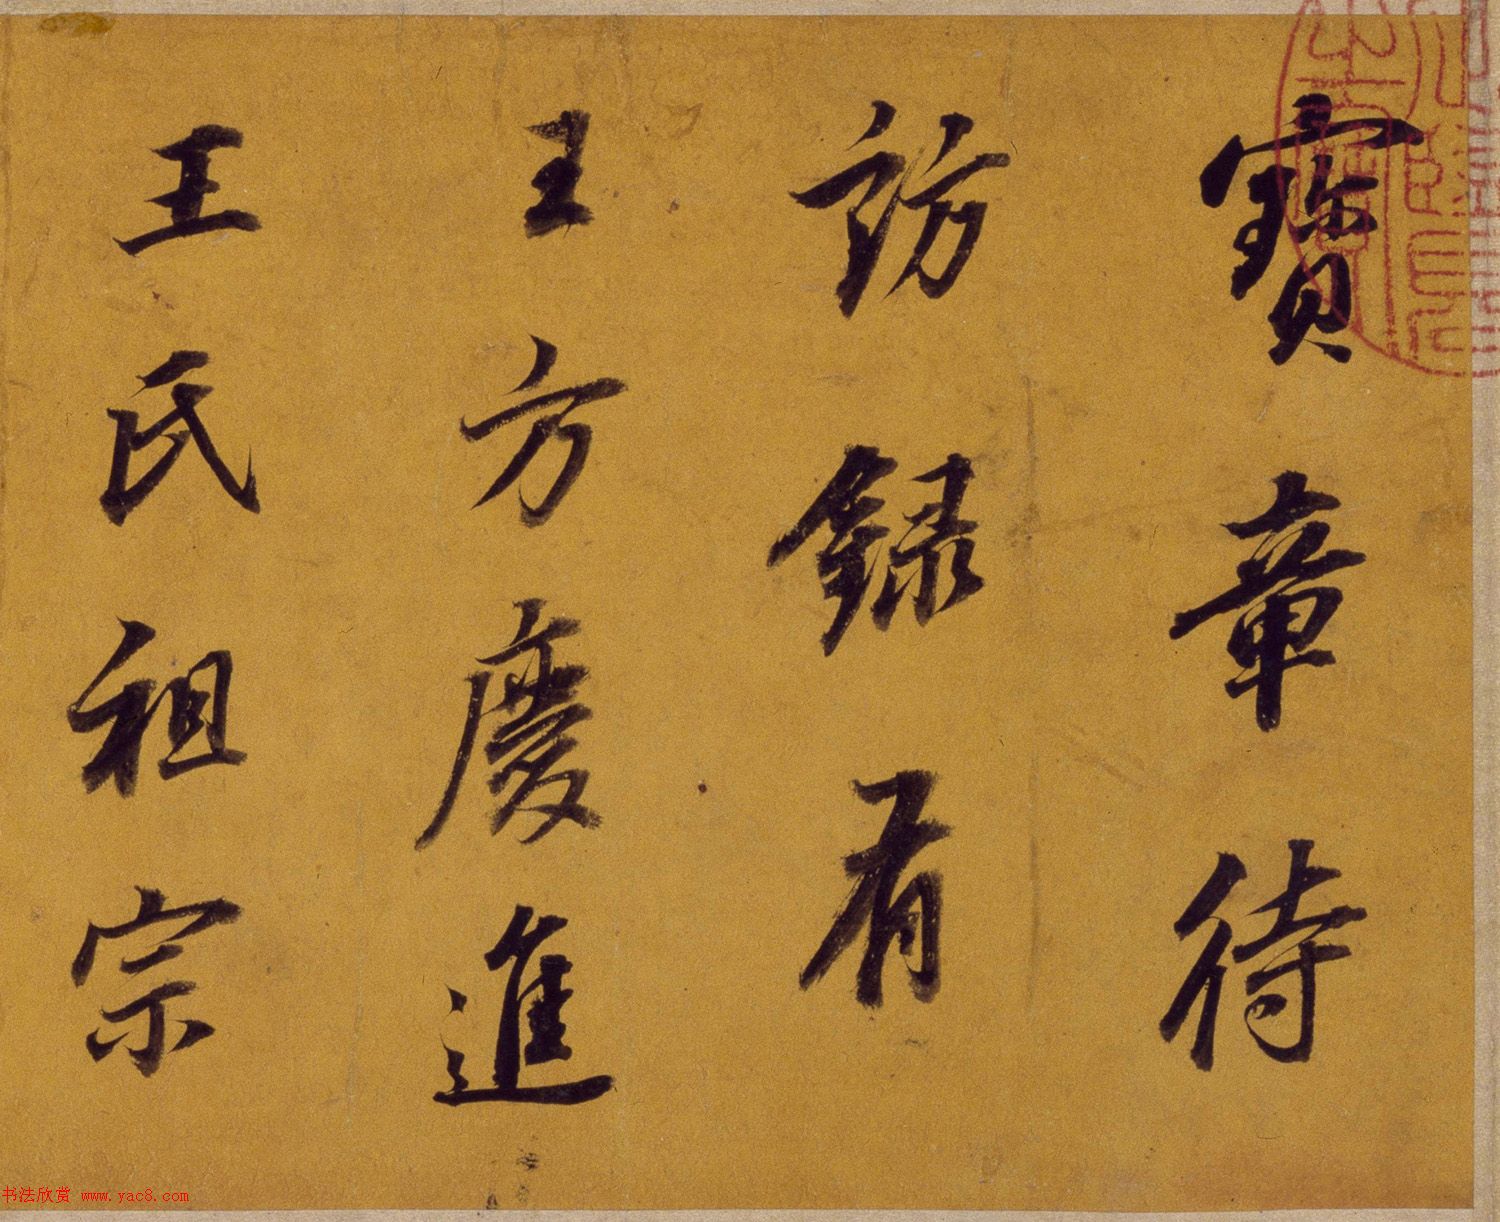 寶章待
訪録有
王方慶進
王氏祖宗
书法欣赏 www.yac8.com